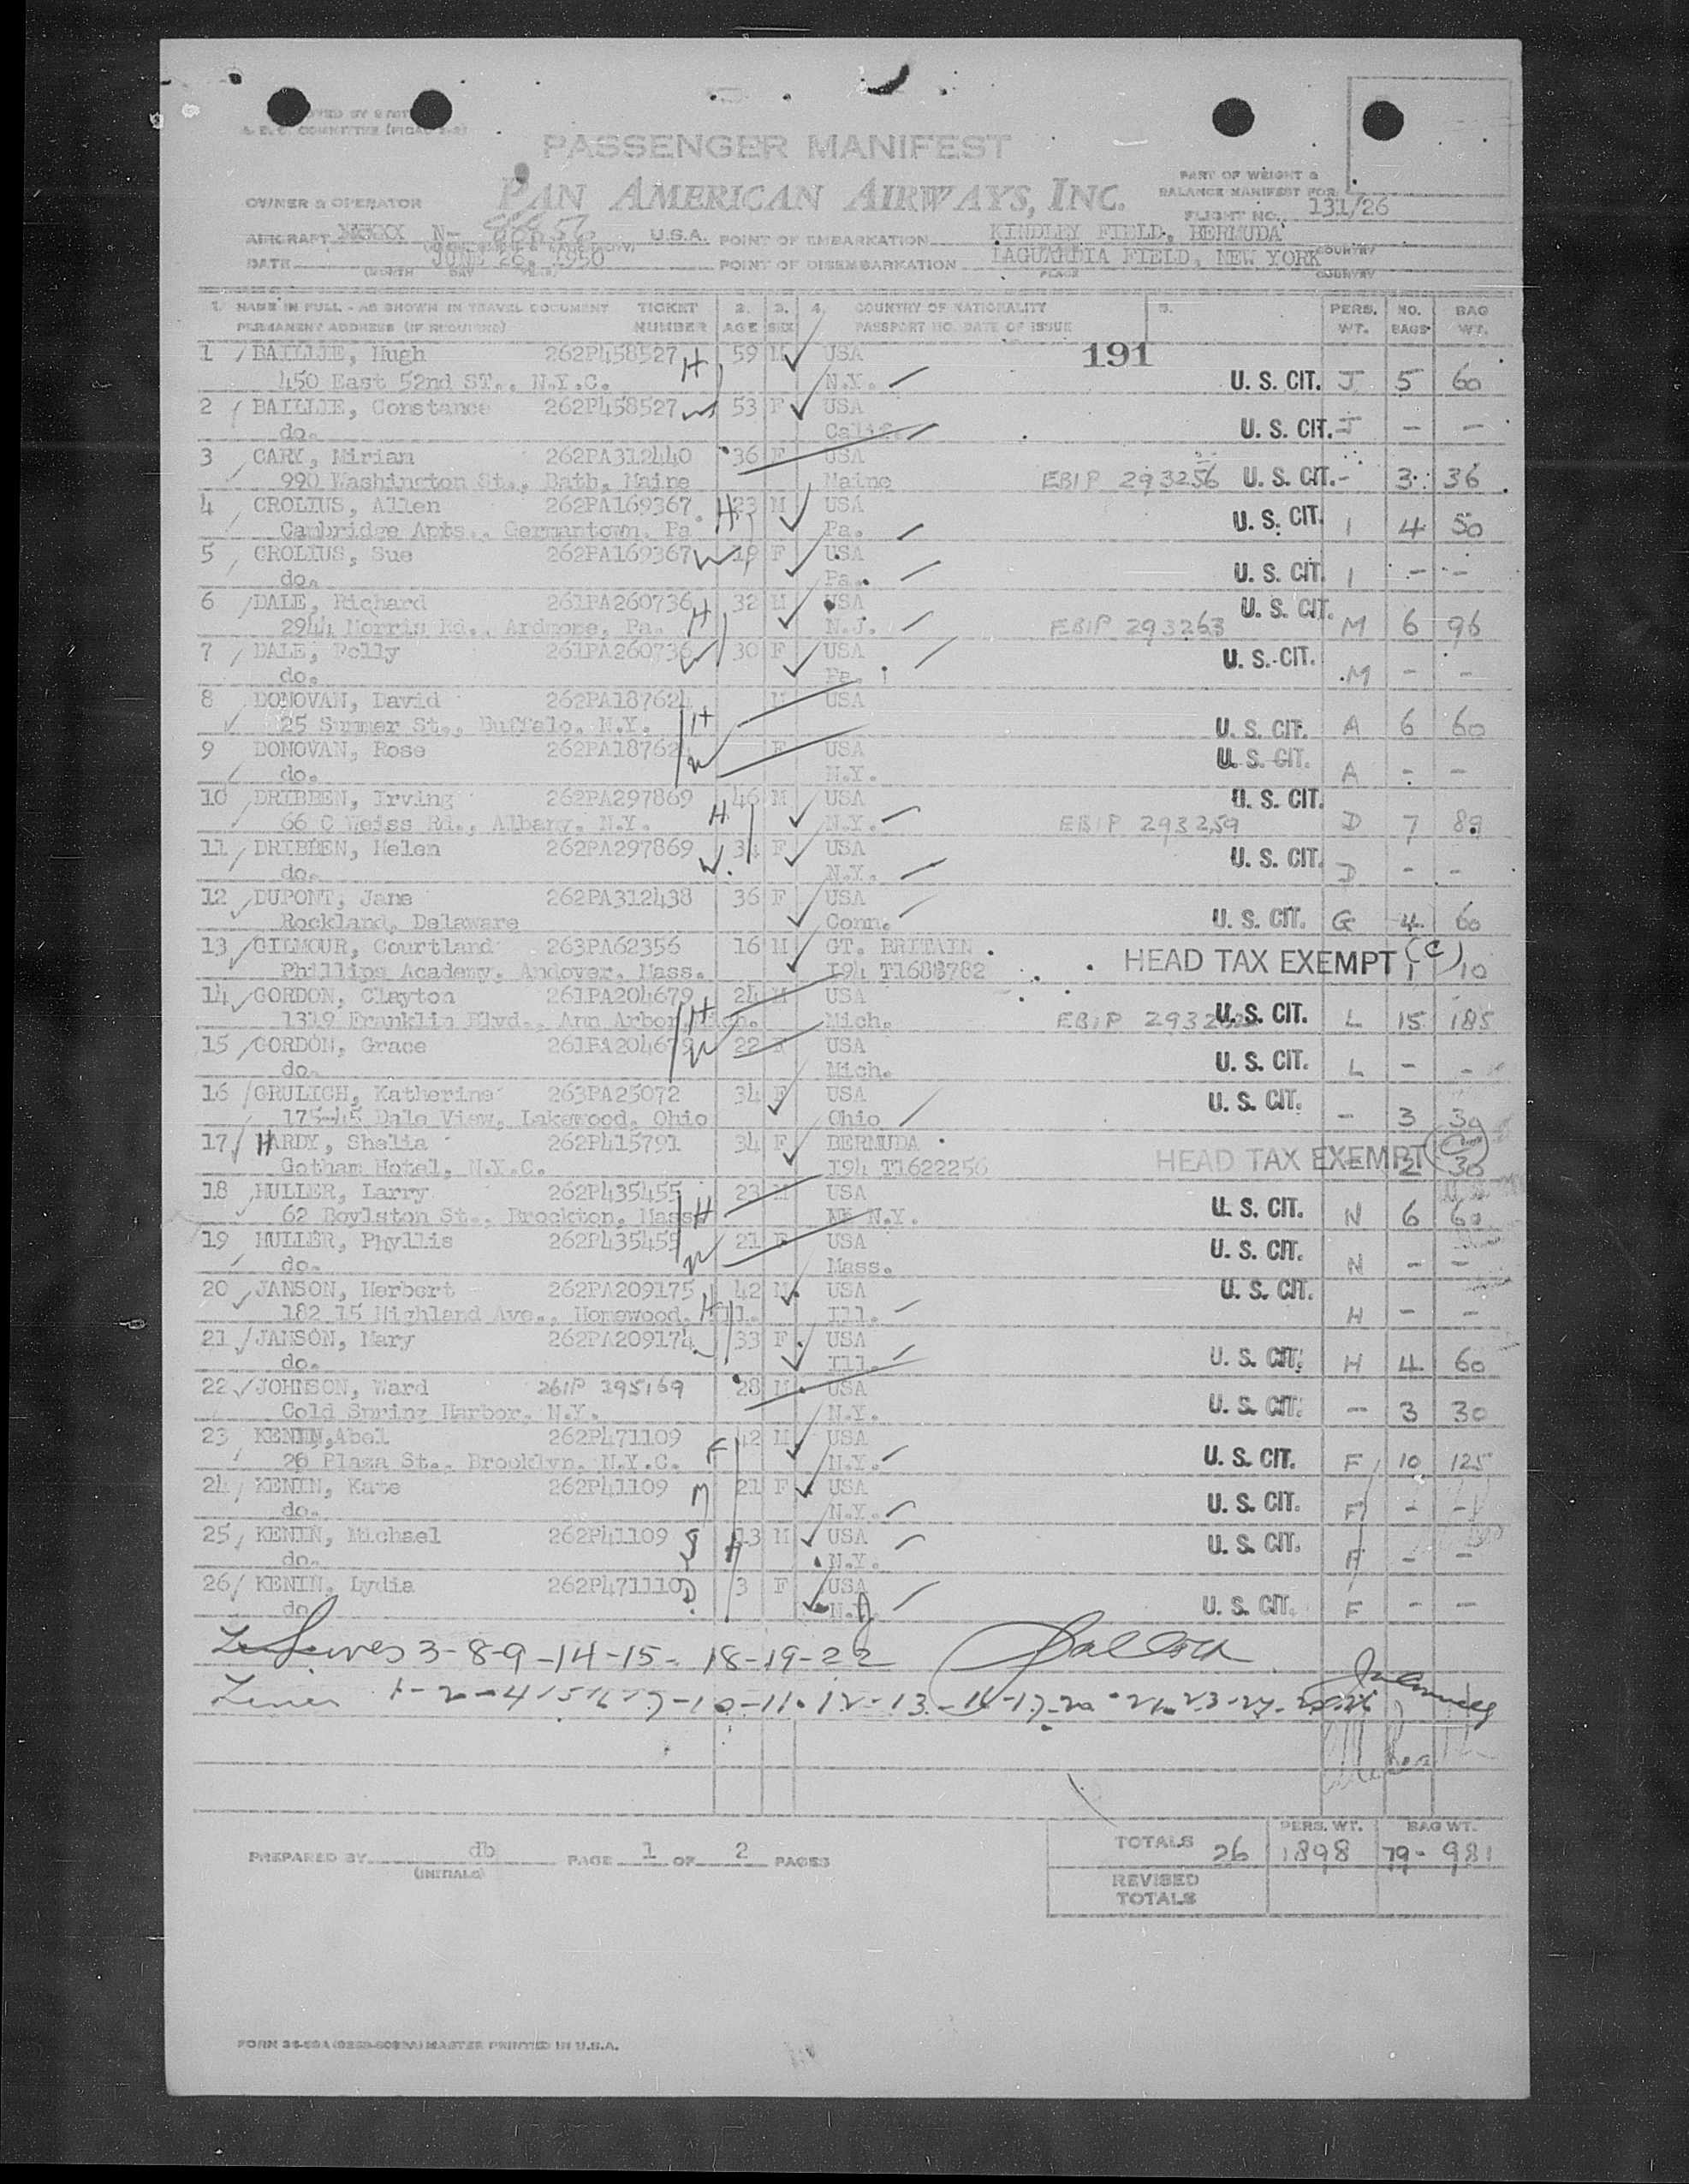 PASSENGER MANIFEST
PAN AMERICAN AIRWAYS, INC.
PART OF WEIGHT &
BALANCE MANIFEST FOR
OWNER & OPERATOR
FLIGHT NO. 131/26
AIRCRAFT N- U.S.A. POINT OF EMBARKATION KINDLEY FIELD, BERMUDA
COUNTRY
DATE JUNE 26, 1950 POINT OF DISEMBARKATION LAGUARDIA FIELD, NEW YORK
(MONTH DAY YEAR) PLACE COUNTRY
1. NAME IN FULL - AS SHOWN IN TRAVEL DOCUMENT TICKET 2. 3. 4. COUNTRY OF NATIONALITY 5. PERS. NO. BAG
PERMANENT ADDRESS (IF REQUIRED) NUMBER AGE SEX PASSPORT NO. DATE OF ISSUE WT. BAGS WT.
1 BAILLIE, Hugh 262P458527 H 59 M USA 191
450 East 52nd ST., N.Y.C. N.Y. U. S. CIT. J 5 60
2 BAILLIE, Constance 262P458527 W 53 F USA
do. Calif. U. S. CIT. J - -
3 CARY, Miriam 262PA312440 36 F USA
990 Washington St., Bath, Maine Maine EBIP 293256 U. S. CIT. - 3 36
4 CROLIUS, Allen 262PA169367 H 23 M USA
Cambridge Apts., Germantown, Pa. Pa. U. S. CIT. I 4 50
5 CROLIUS, Sue 262PA169367 W 19 F USA
do. Pa. U. S. CIT. I - -
6 DALE, Richard 261PA260736 H 32 M USA U. S. CIT.
2944 Morris Rd., Ardmore, Pa. N.J. EBIP 293263 M 6 96
7 DALE, Polly 261PA260736 W 30 F USA U. S. CIT.
do. Pa. M - -
8 DONOVAN, David 262PA187624 M USA
25 Summer St., Buffalo, N.Y. H U. S. CIT. A 6 60
9 DONOVAN, Rose 262PA18762 F USA U. S. CIT.
do. W N.Y. A - -
10 DRIBBEN, Irving 262PA297869 46 M USA U. S. CIT.
66 C Weiss Rd., Albany, N.Y. H N.Y. EBIP 293259 D 7 89
11 DRIBBEN, Helen 262PA297869 W 34 F USA U. S. CIT.
do. N.Y. D - -
12 DUPONT, Jane 262PA312438 36 F USA
Rockland, Delaware Conn. U. S. CIT. G 4 60
13 GILMOUR, Courtland 263PA62356 16 M GT. BRITAIN HEAD TAX EXEMPT (C)
Phillips Academy, Andover, Mass. I94 T1688782 1 10
14 GORDON, Clayton 261PA204679 24 M USA
1319 Franklin Blvd., Ann Arbor, H Mich. EBIP U. S. CIT. L 15 185
15 GORDON, Grace 261PA204679 22 F USA
do. W Mich. U. S. CIT. L - -
16 GRULICH, Katherine 263PA25072 34 F USA U. S. CIT.
175-45 Dale View, Lakewood, Ohio Ohio - 3 30
17 HARDY, Shelia 262P415791 34 F BERMUDA
Gotham Hotel, N.Y.C. I94 T1622256 HEAD TAX EXEMPT (C) 2 30
18 HULLER, Larry 262P435455 23 M USA
62 Boylston St., Brockton, Mass H N.Y. U. S. CIT. N 6 60
19 HULLER, Phyllis 262P435455 21 F USA U. S. CIT.
do. W Mass. N - -
20 JANSON, Herbert 262PA209175 42 M USA U. S. CIT.
182 15 Highland Ave., Homewood, Ill. H Ill. H - -
21 JANSON, Mary 262PA209174 33 F USA
do. Ill. U. S. CIT. H 4 60
22 JOHNSON, Ward 261P 295169 28 M USA
Cold Spring Harbor, N.Y. N.Y. U. S. CIT. - 3 30
23 KENIN, Abel 262P471109 42 M USA
26 Plaza St., Brooklyn, N.Y.C. F N.Y. U. S. CIT. F 10 125
24 KENIN, Kate 262P41109 M 21 F USA
do. N.Y. U. S. CIT. F - -
25 KENIN, Michael 262P41109 S 13 M USA U. S. CIT.
do. N.Y. F - -
26 KENIN, Lydia 262P471110 D 3 F USA
do N.J. U. S. CIT. F - -
3-8-9-14-15-18-19-22
TOTALS 26 PERS. WT. 1898 BAG WT. 79- 981
PREPARED BY db PAGE 1 OF 2 PAGES
(INITIALS)
REVISED
TOTALS
MASTER PRINTED IN U.S.A.